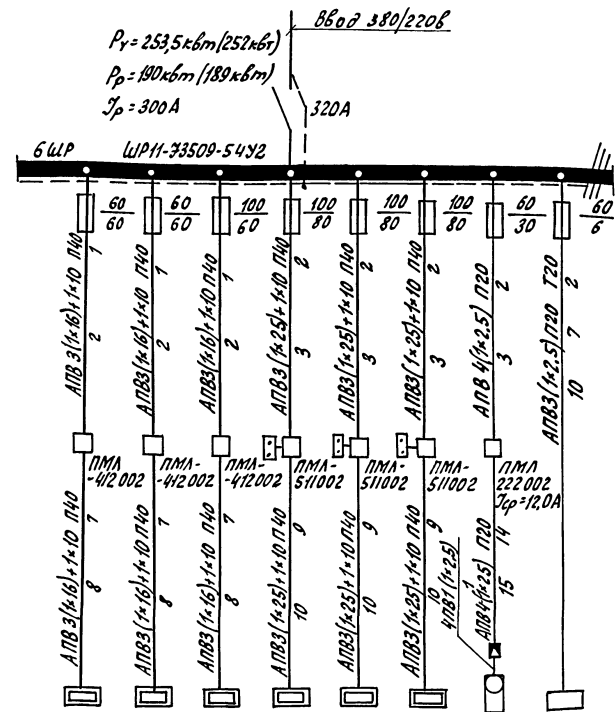 Ввод 380/220в
Ру=253,5квт(252квт)
Рр=190квт(189квт)
Iр=300А
320А
6ШР
ШР11-73509-54У2
60/60
60/60
100/60
100/80
100/80
100/80
60/30
60/6
АПВ3(1×16)+1×10 П40
1
2
АПВ3(1×16)+1×10 П40
1
2
АПВ3(1×16)+1×10 П40
1
2
АПВ3(1×25)+1×10 П40
2
3
АПВ3(1×25)+1×10 П40
2
3
АПВ3(1×25)+1×10 П40
2
3
АПВ 4(1×2,5) П20
2
3
АПВ3(1×2,5) П20 Т20
2
7
10
ПМЛ-
-412002
ПМЛ-
-412002
ПМЛ-
-412002
ПМЛ-
511002
ПМЛ-
511002
ПМЛ-
511002
ПМЛ
222002
Iср=12,0А
АПВ3(1×16)+1×10 П40
7
8
АПВ3(1×16)+1×10 П40
7
8
АПВ3(1×16)+1×10 П40
7
8
АПВ3(1×25)+1×10 П40
9
10
АПВ3(1×25)+1×10 П40
9
10
АПВ3(1×25)+1×10 П40
9
10
4ПВ1(1×2,5)
1
АПВ4(1×25) П20
14
15